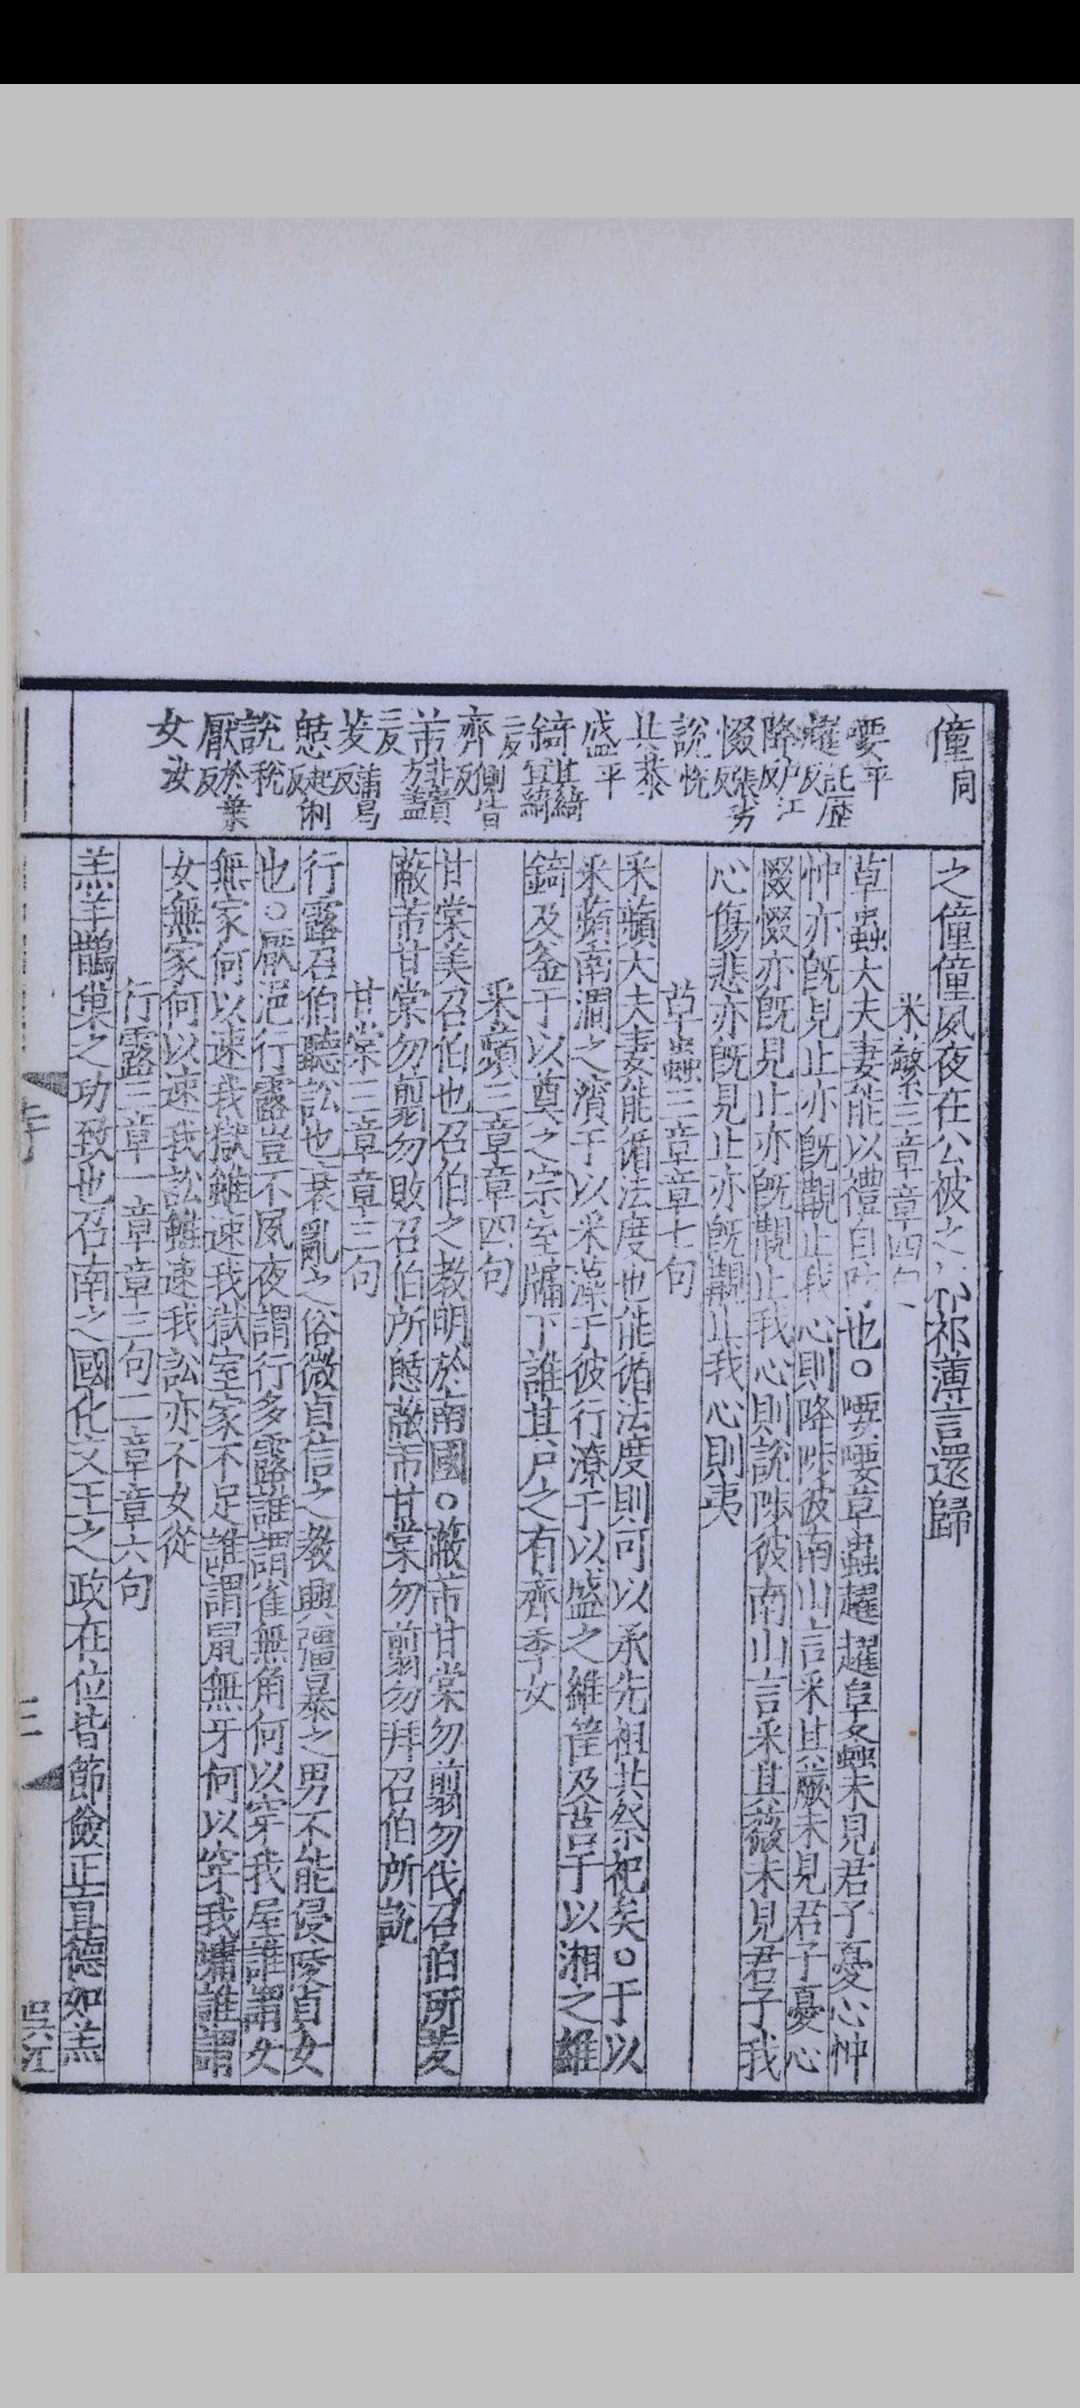 僮同
嘤平
趯託歴反
降戸江反
惙張劣反
說恱
共恭
盛平
錡其綺宜綺二反
齊側皆反
芾非貴方蓋二反
茇蒲曷反
憩起例反
說稅
厭於葉反
女汝
之僮僮夙夜在公被之祁祁薄言還歸
采蘩三章章四句
草蟲大夫妻能以禮自防也○喓喓草蟲趯趯阜螽未見君子憂心忡
忡亦旣見止亦旣覯止我心則降陟彼南山言采其蕨未見君子憂心
惙惙亦旣見止亦旣覯止我心則說陟彼南山言采其薇未見君子我
心傷悲亦旣見止亦旣覯止我心則夷
草蟲三章章七句
采蘋大夫妻能循法度也能循法度則可以承先祖共祭祀矣○于以
采蘋南澗之濱于以采藻于彼行潦于以盛之維筐及筥于以湘之維
錡及釜于以奠之宗室牖下誰其尸之有齊季女
采蘋三章章四句
甘棠美召伯也召伯之教明於南國○蔽芾甘棠勿翦勿伐召伯所茇
蔽芾甘棠勿翦勿敗召伯所憩蔽芾甘棠勿翦勿拜召伯所說
甘棠三章章三句
行露召伯聽訟也衰亂之俗微貞信之教興彊暴之男不能侵陵貞女
也○厭浥行露豈不夙夜謂行多露誰謂雀無角何以穿我屋誰謂女
無家何以速我獄雖速我獄室家不足誰謂鼠無牙何以穿我墉誰謂
女無家何以速我訟雖速我訟亦不女從
行露三章一章章三句二章章六句
羔羊鵲巢之功致也召南之國化文王之政在位皆節儉正直德如羔
寺
三
吳江